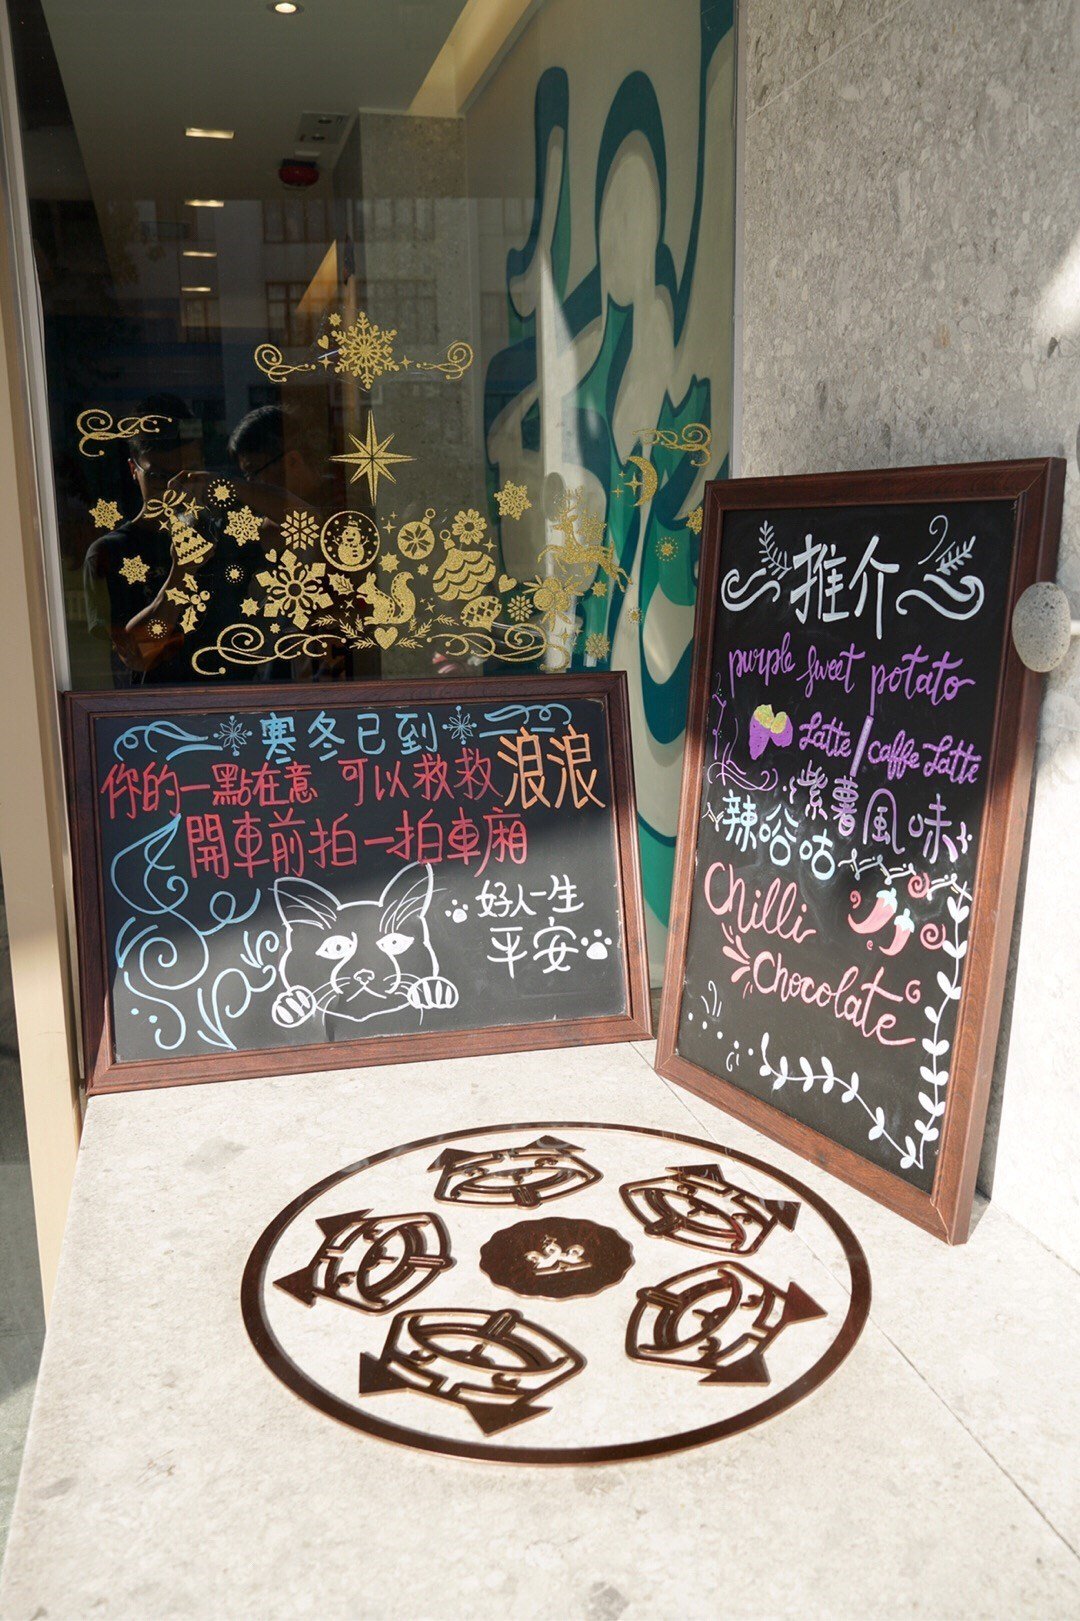 寒冬已到
你的一點在意 可以救救浪浪
開車前拍一拍車廂
好人一生
平安
推介
purple sweet potato
Latte / Caffe Latte
紫薯風味
辣哈咕
Chilli
Chocolate